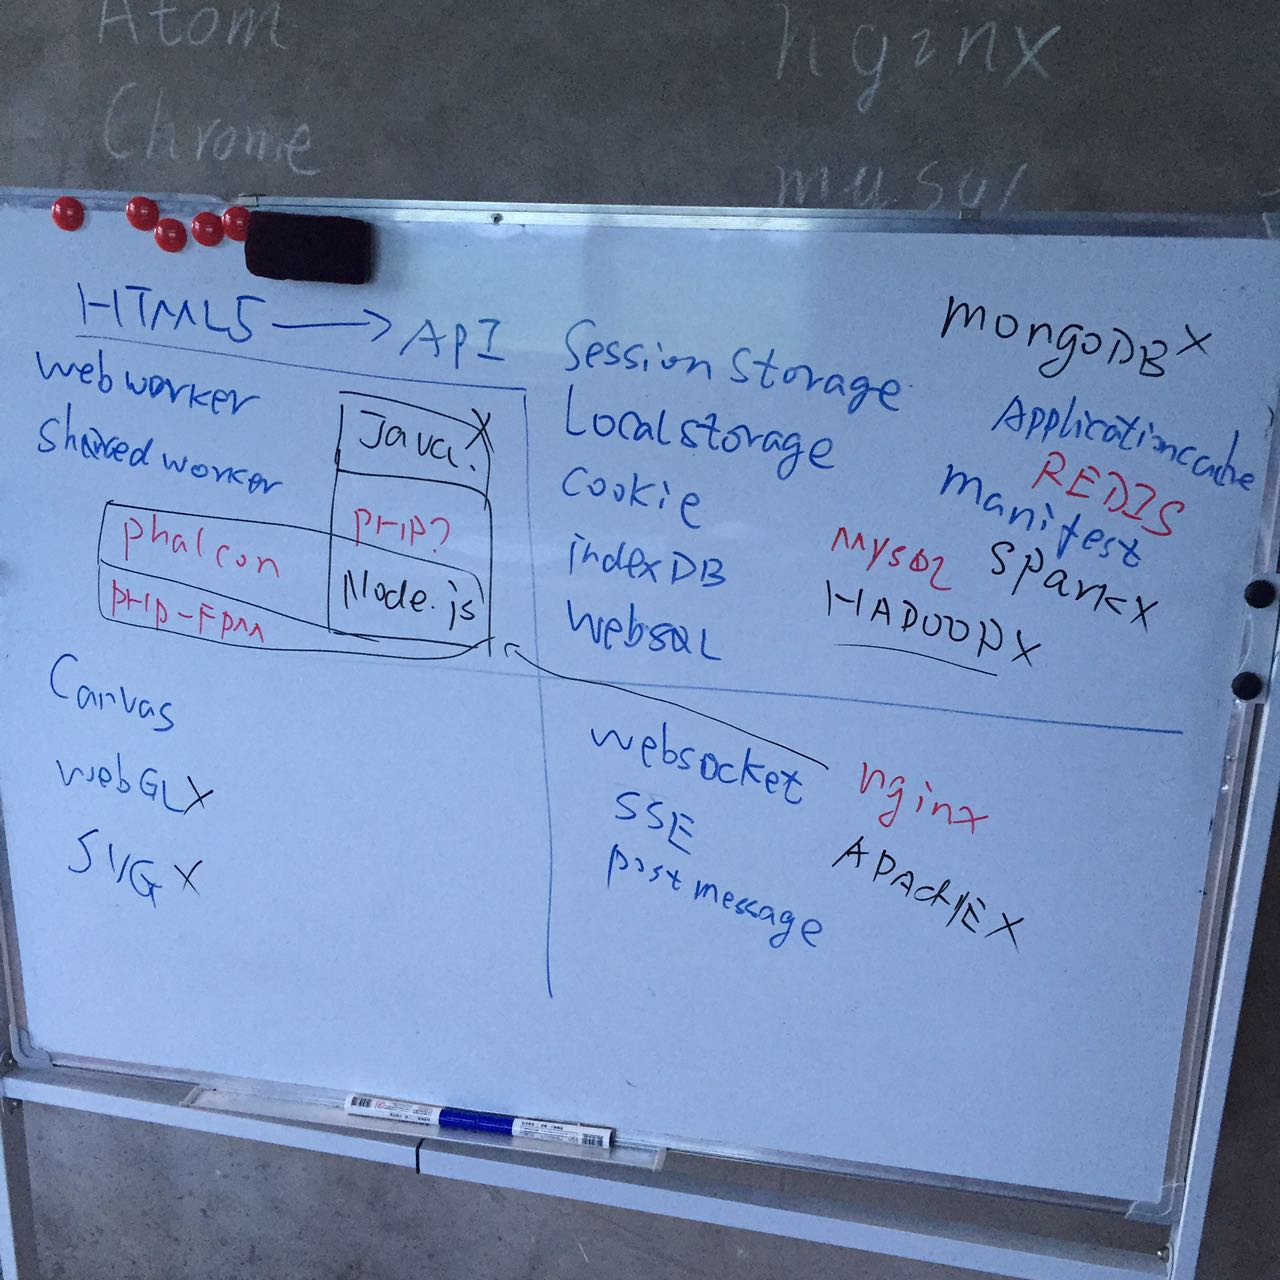 Atom
nginx
Chrome
mysql
HTML5 → API
web worker
shared worker
Java. X
PHP?
Node.js
phalcon
PHP-FPM
Session Storage
Localstorage
cookie
indexDB
websQL
mongoDB X
Applicationcache
REDIS
manifest
MySQL
Spark X
HADOOP X
Canvas
webGL X
SVG X
websocket
SSE
post message
nginx
APACHE X